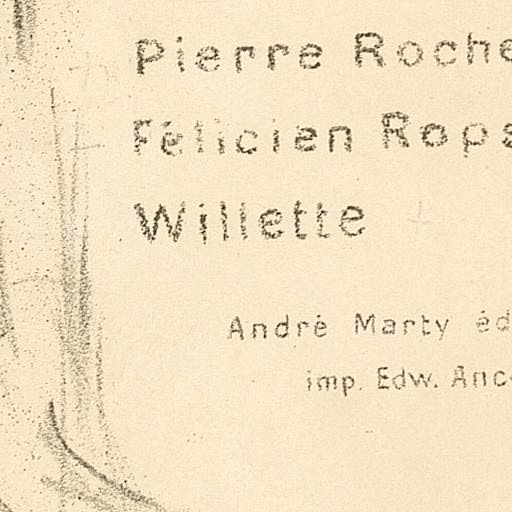 Pierre Roche
Félicien Rops
Willette
André Marty éd
imp. Edw. Anc